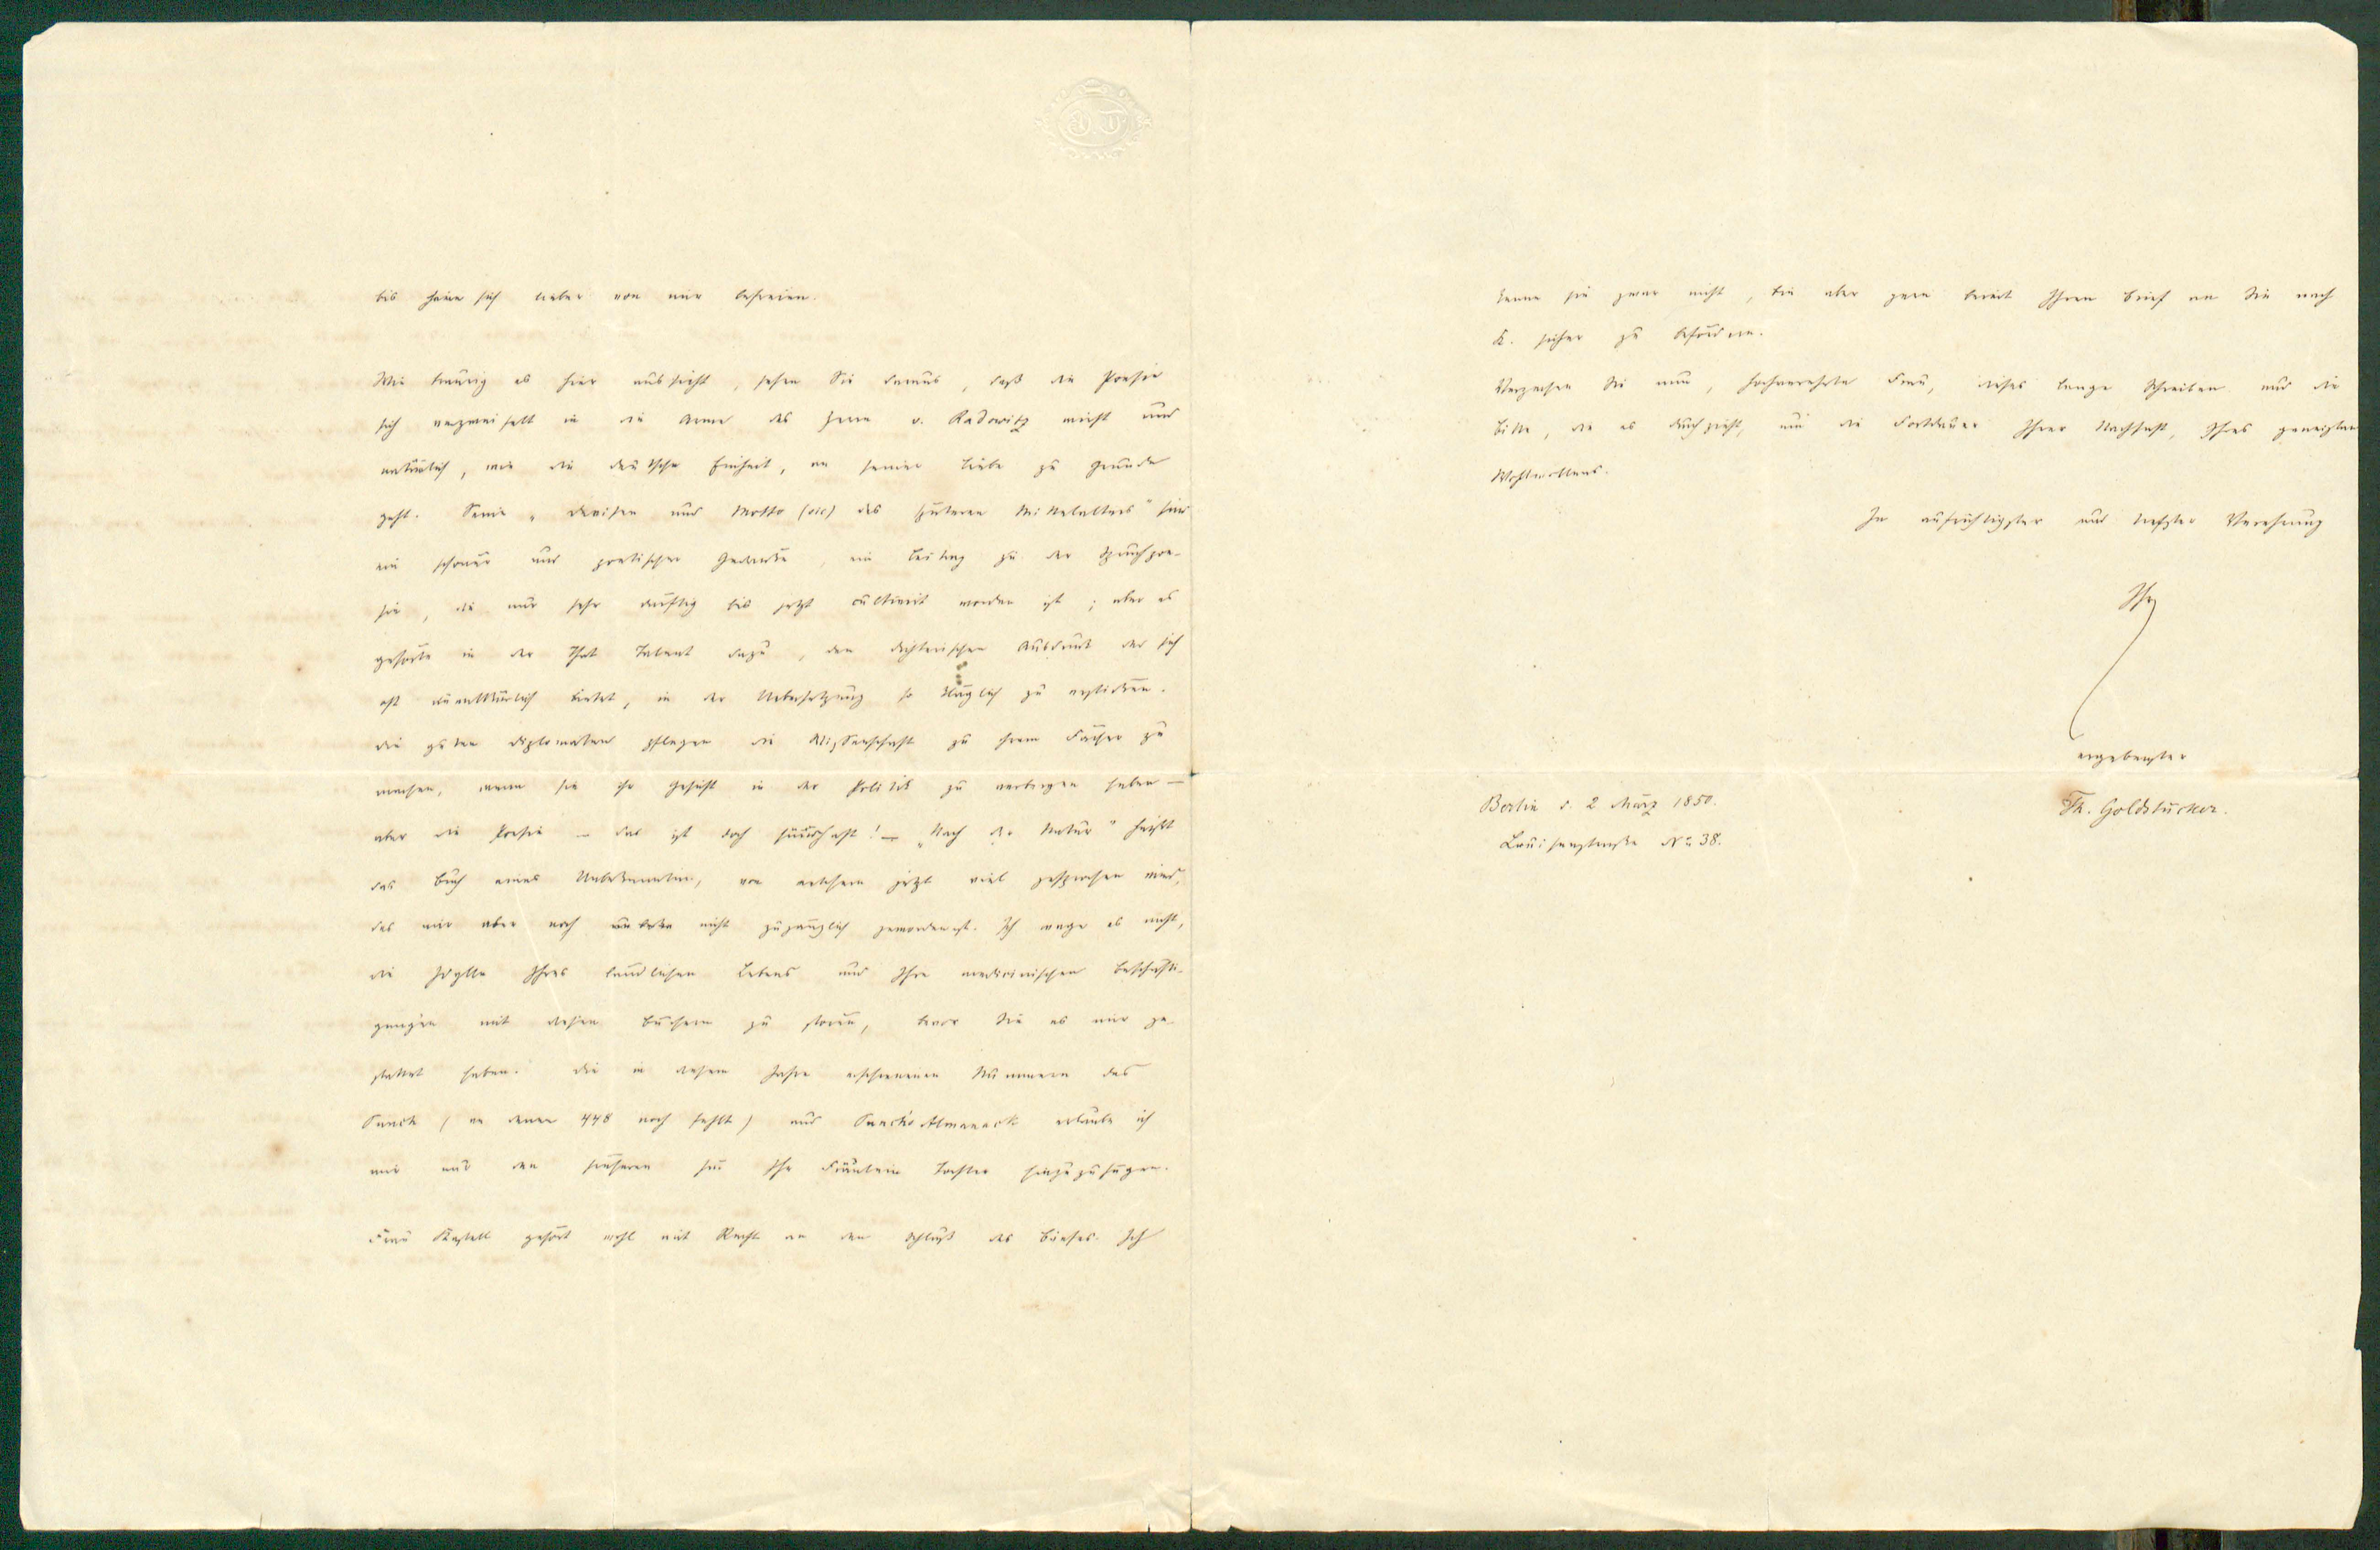 bis seine sich lieber von mir befreien.
Wie traurig es hier aussieht, sehen Sie daraus, daß die Poesie
sich verzweifelt in die Arme des Herrn v. Radowitz wirft und
natürlich, wie die deutsche Einheit, an seiner Liebe zu Grunde
geht. Seine „Devisen und Motto (sic) des späteren Mittelalters" sind
ein schöner und poetischer Gedanke, ein Beitrag zu der Spruchpoe-
sie, die nur sehr dürftig bis jetzt cultivirt worden ist; aber es
gehörte in der That Talent dazu, den dichterischen Ausdruck der sich
oft unwillkürlich bietet, in der Uebersetzung so kläglich zu ersticken.
Die guten Diplomaten pflegen die Wissenschaft zu ihrem Fächer zu
machen, wenn sie ihr Gesicht in der Politik zu verbergen haben —
aber die Poesie — das ist doch sündhaft! — „Nach der Natur" heißt
das Buch eines Unbekannten, von welchem jetzt viel gesprochen wird,
das mir aber noch nicht zugänglich geworden ist. Ich wage es nicht,
die Idylle Ihres ländlichen Lebens und Ihre medicinischen Beschäfti-
gungen mit diesen Büchern zu stören, bevor Sie es mir ge-
stattet haben. Die in diesem Jahre erschienenen Nummern des
Punch (an denen 448 noch fehlt) und Punch's Almanack erlaube ich
mir nur den früheren für Ihr Fräulein Tochter hinzuzufügen.
Frau Kastell gehört wohl mit Recht an den Schluß des Briefes. Ich
kenne sie zwar nicht, bin aber gern bereit Ihren Brief an Sie nach
K. sicher zu befördern.
Verzeihen Sie nun, hochverehrte Frau, dieses lange Schreiben und die
Bitte, die es durchzieht, um die Fortdauer Ihrer Nachsicht, Ihres geneigten
Wohlwollens.
In aufrichtigster und tiefster Verehrung
Ihr
ergebenster
Th. Goldstücker.
Berlin d. 2 März 1850.
Louisenstraße No 38.